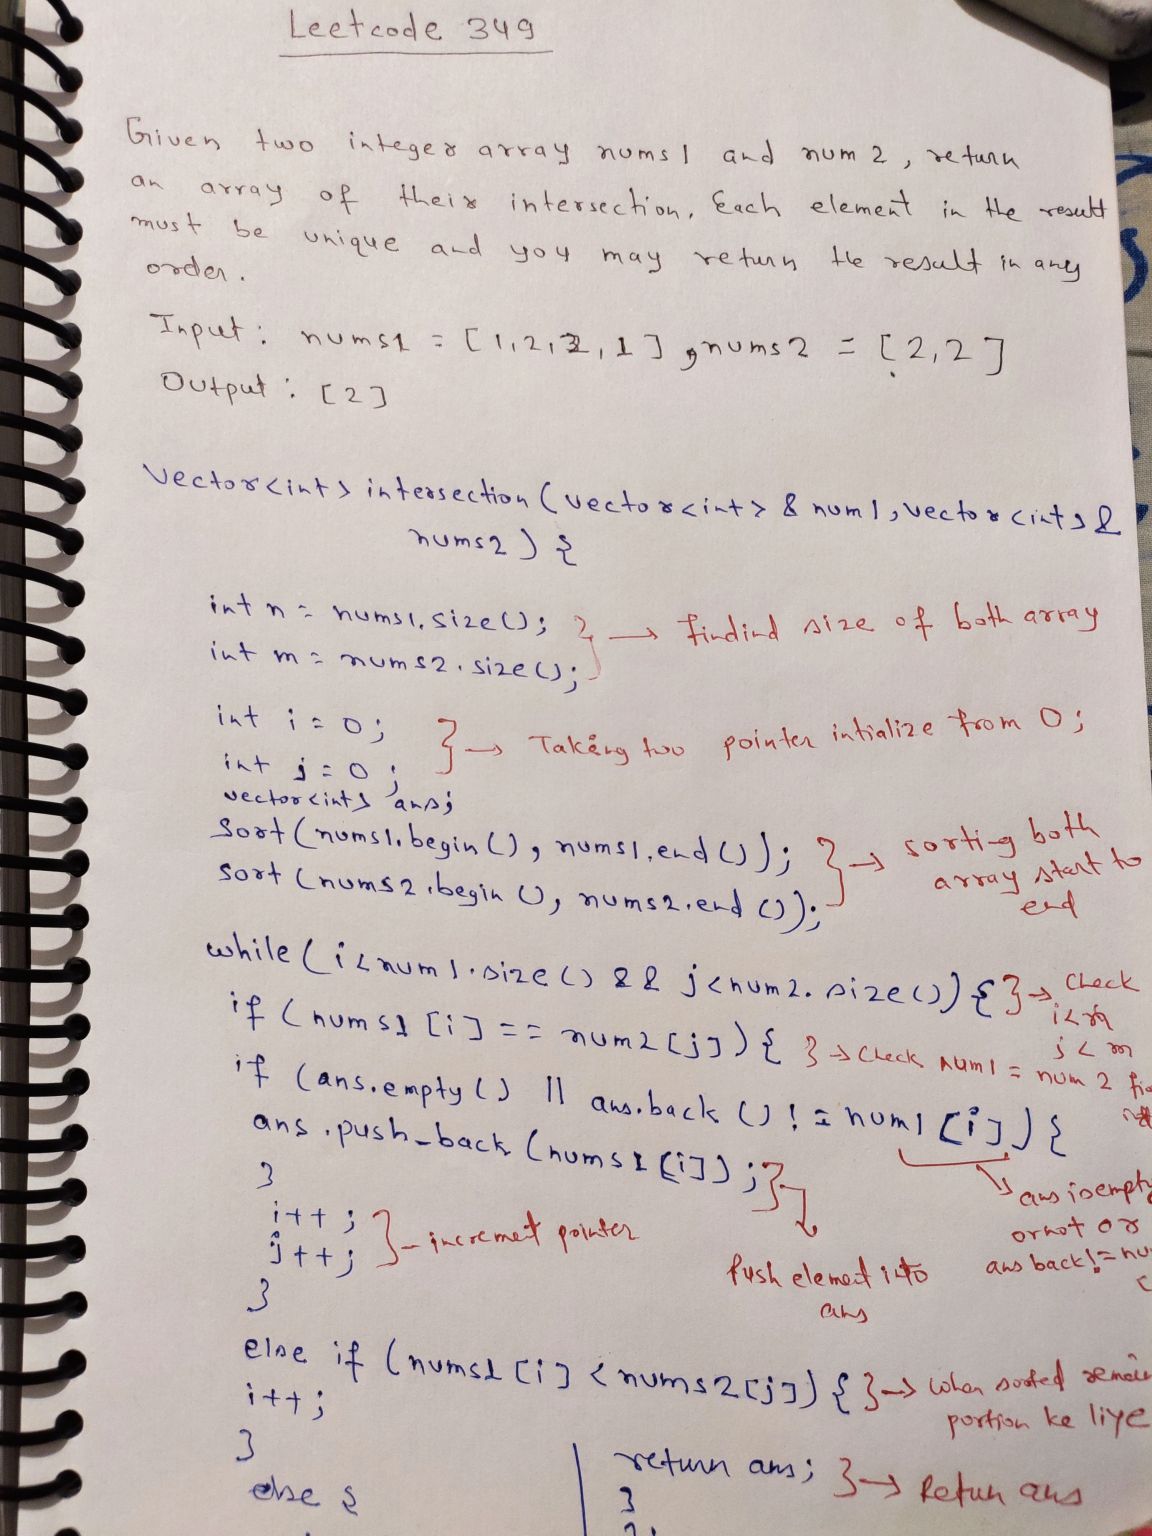 Leetcode 349
Given two integer array nums1 and num2, return
an array of their intersection. Each element in the result
must be unique and you may return the result in any
order.
Input: nums1 = [1,2,2,1], nums2 = [2,2]
Output: [2]
vector<int> intersection(vector<int> & num1, vector<int> &
nums2) {
int n = nums1.size(); } → Findind size of both array
int m = nums2.size();
int i = 0; } → Taking two pointer intialize from 0;
int j = 0;
vector<int> ans;
sort(nums1.begin(), nums1.end()); } → sorting both
sort(nums2.begin(), nums2.end()); array start to
end
while(i<num1.size() && j<num2.size()) { } → Check
i<n
j<m
if (nums1[i] == num2[j]) { } → Check num1 = num2
if (ans.empty() || ans.back() != num1[i]) {
ans.push_back(nums1[i]); }
} ans is empty
i++; } - increment pointer or not or
j++; Push element into ans back !=
} ans
else if (nums1[i] < nums2[j]) { } → when sorted
i++; portion ke liye
}
else {
return ans; } → Retun ans
}